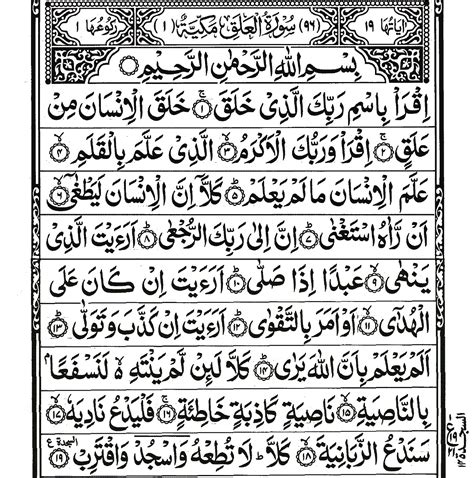 اٰيَاتُهَا ١٩ (٩٦) سُوْرَةُ الْعَلَقِ مَكِّيَّةٌ (١) رُكُوْعُهَا ١
بِسْمِ اللّٰهِ الرَّحْمٰنِ الرَّحِيْمِ ۝
اِقْرَاْ بِاسْمِ رَبِّكَ الَّذِىْ خَلَقَ ۝١ خَلَقَ الْاِنْسَانَ مِنْ
عَلَقٍ ۝٢ اِقْرَاْ وَرَبُّكَ الْاَكْرَمُ ۝٣ الَّذِىْ عَلَّمَ بِالْقَلَمِ ۝٤
عَلَّمَ الْاِنْسَانَ مَا لَمْ يَعْلَمْ ۝٥ كَلَّاۤ اِنَّ الْاِنْسَانَ لَيَطْغٰٓى ۝٦
اَنْ رَّاٰهُ اسْتَغْنٰى ۝٧ اِنَّ اِلٰى رَبِّكَ الرُّجْعٰى ۝٨ اَرَءَيْتَ الَّذِىْ
يَنْهٰى ۝٩ عَبْدًا اِذَا صَلّٰى ۝١٠ اَرَءَيْتَ اِنْ كَانَ عَلَى
الْهُدٰٓى ۝١١ اَوْ اَمَرَ بِالتَّقْوٰى ۝١٢ اَرَءَيْتَ اِنْ كَذَّبَ وَتَوَلّٰى ۝١٣
اَلَمْ يَعْلَمْ بِاَنَّ اللّٰهَ يَرٰى ۝١٤ كَلَّا لَئِنْ لَّمْ يَنْتَهِ ۵ لَنَسْفَعًۢا
بِالنَّاصِيَةِ ۝١٥ نَاصِيَةٍ كَاذِبَةٍ خَاطِئَةٍ ۝١٦ فَلْيَدْعُ نَادِيَهٗ ۝١٧
سَنَدْعُ الزَّبَانِيَةَ ۝١٨ كَلَّا ؕ لَا تُطِعْهُ وَاسْجُدْ وَاقْتَرِبْ ۝١٩ السجدة ع